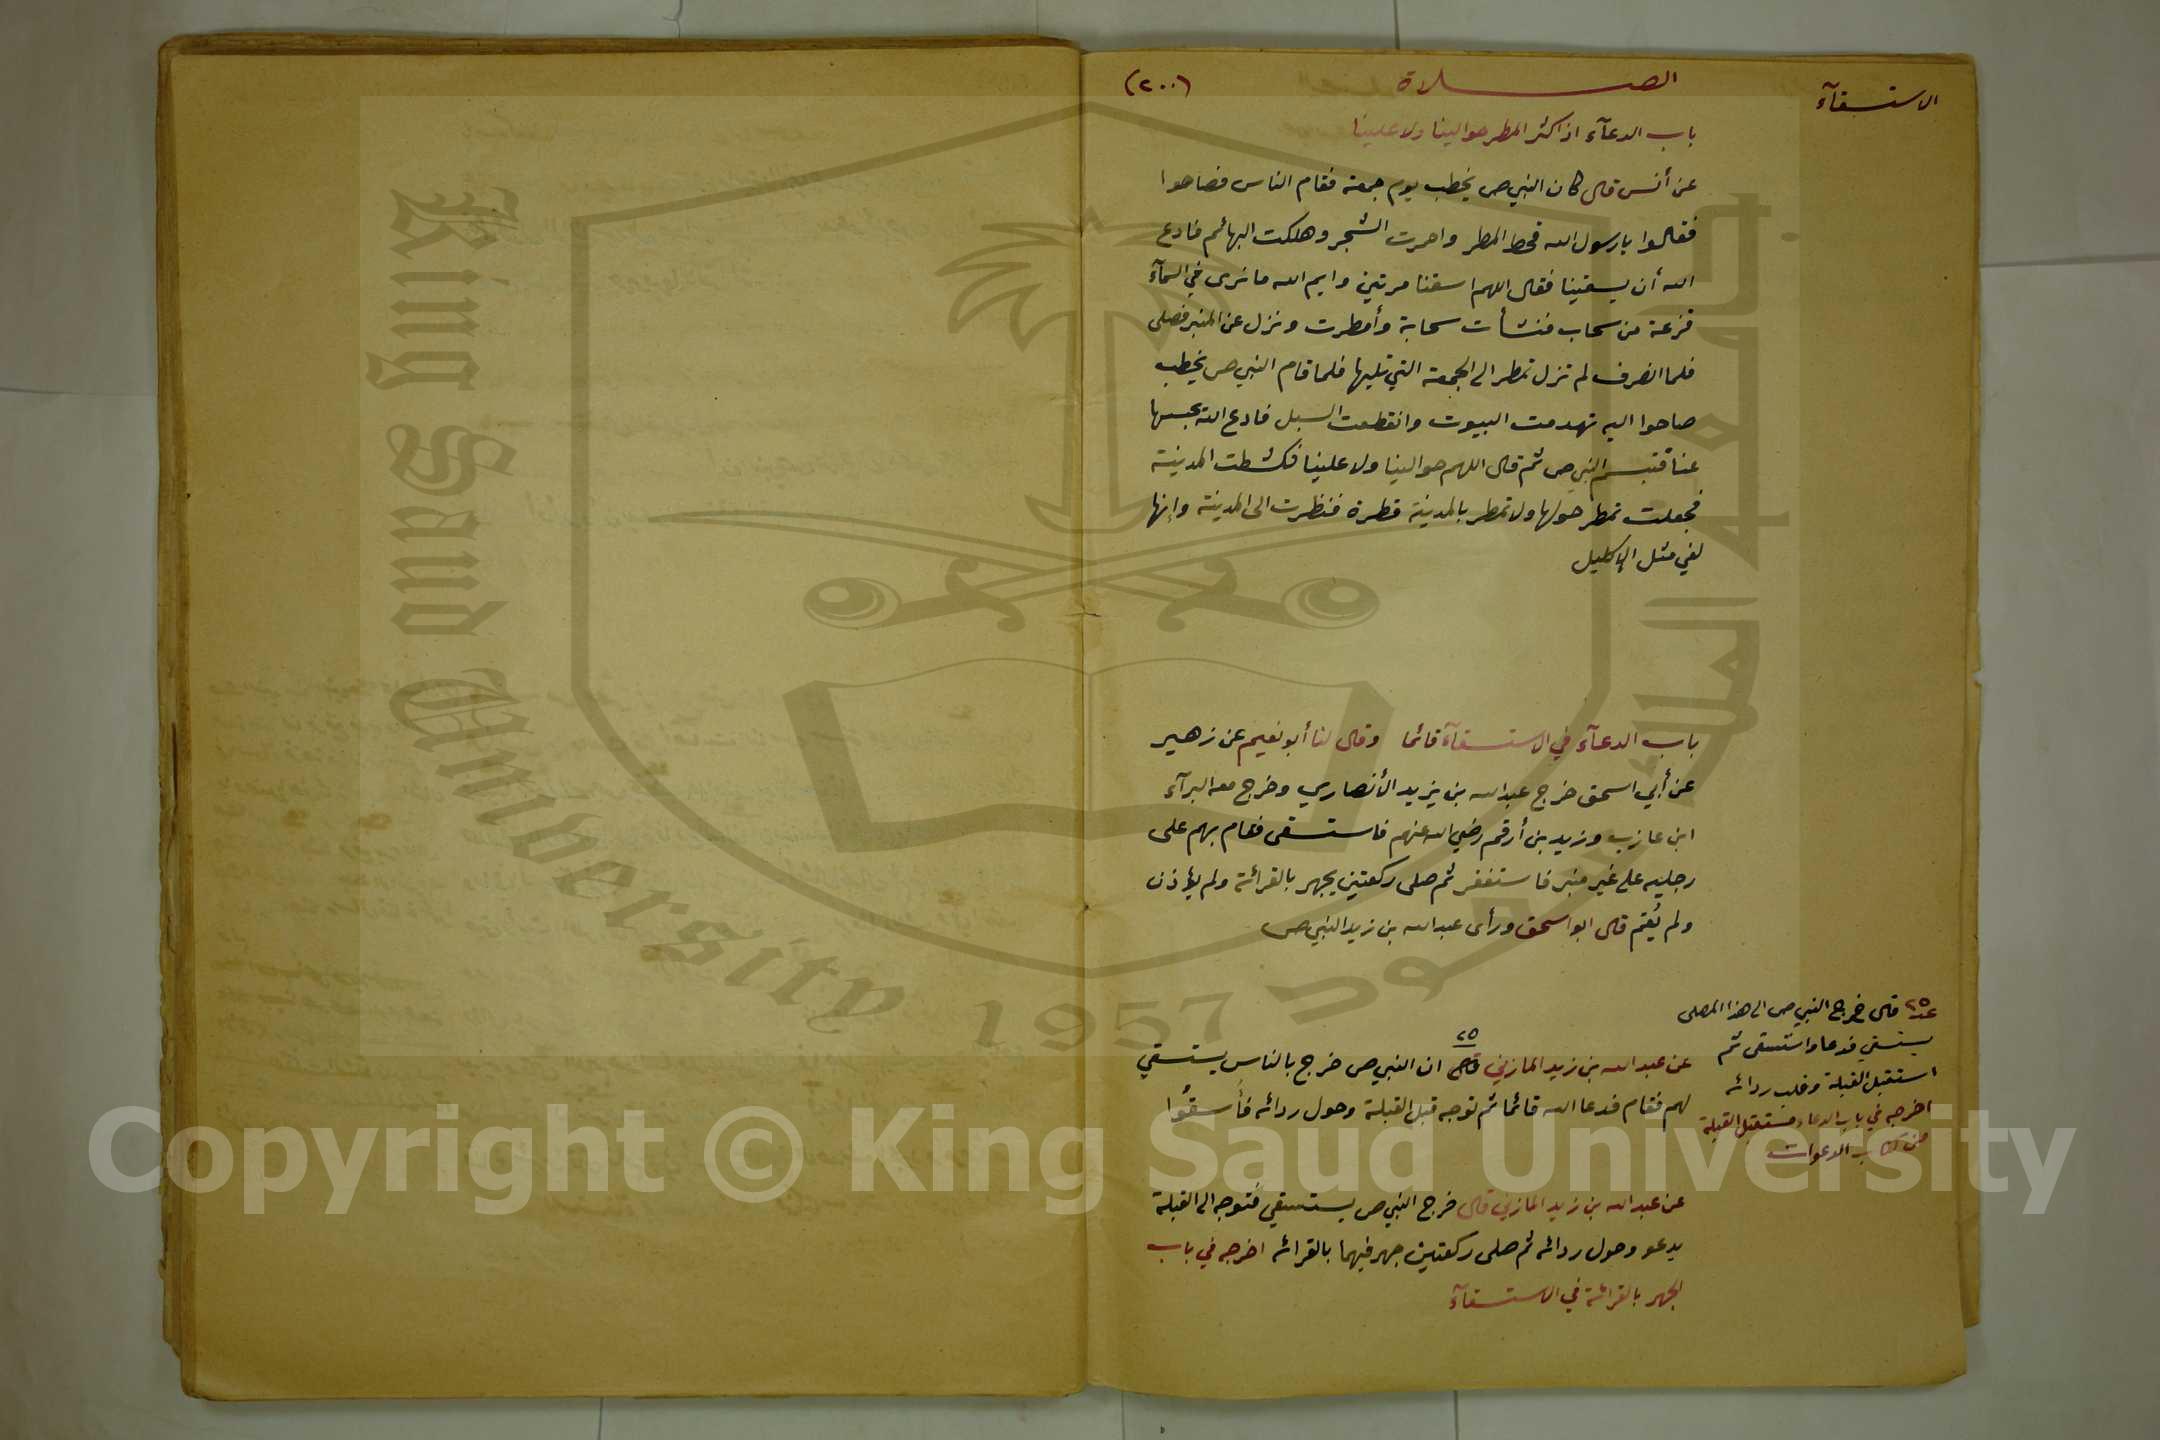 الاستسقآء
الصلاة
(٢٠٠)
باب الدعآء اذا كثر المطر حوالينا ولا علينا
عن أنس قال كان النبي ص يخطب يوم جمعة فقام الناس فصاحوا
فقالوا يا رسول الله قحط المطر واحمرت الشجر وهلكت البهائم فادع
الله أن يسقينا فقال اللهم اسقنا مرتين وايم الله ما نرى في السمآء
قزعة من سحاب فنشأت سحابة وأمطرت ونزل عن المنبر فصلى
فلما انصرف لم تزل تمطر الى الجمعة التي تليها فلما قام النبي ص يخطب
صاحوا اليه تهدمت البيوت وانقطعت السبل فادع الله يحبسها
عنا فتبسم النبي ص ثم قال اللهم حوالينا ولا علينا فكشطت المدينة
فجعلت تمطر حولها ولا تمطر بالمدينة قطرة فنظرت الى المدينة وإنها
لفي مثل الإكليل
باب الدعآء في الاستسقآء قائما وقال لنا أبو نعيم عن زهير
عن أبي اسحق خرج عبد الله بن يزيد الأنصاري وخرج معه البرآء
ابن عازب وزيد بن أرقم رضي الله عنهم فاستسقى فقام بهم على
رجليه على غير منبر فاستغفر ثم صلى ركعتين يجهر بالقرائة ولم يؤذن
ولم يُقم قال ابو اسحق ورأى عبد الله بن زيد النبي ص
٢٥
عن عبد الله بن زيد المازني ان النبي ص خرج بالناس يستسقي
لهم فقام فدعا الله قائما ثم توجه قبل القبلة وحول ردائه فأُسقُوا
عن عبد الله بن زيد المازني قال خرج النبي ص يستسقي فتوجه الى القبلة
يدعو وحول ردائه ثم صلى ركعتين جهر فيهما بالقرائه اخرجه في باب
الجهر بالقرائة في الاستسقآء
٢٥ قال خرج النبي ص الى هذا المصلى
يستسقي فدعا واستسقى ثم
استقبل القبلة وقلب ردائه
اخرجه في باب الدعاء مستقبل القبلة
من كتاب الدعوات
King Saud University
1957
جامعة الملك سعود
Copyright © King Saud University